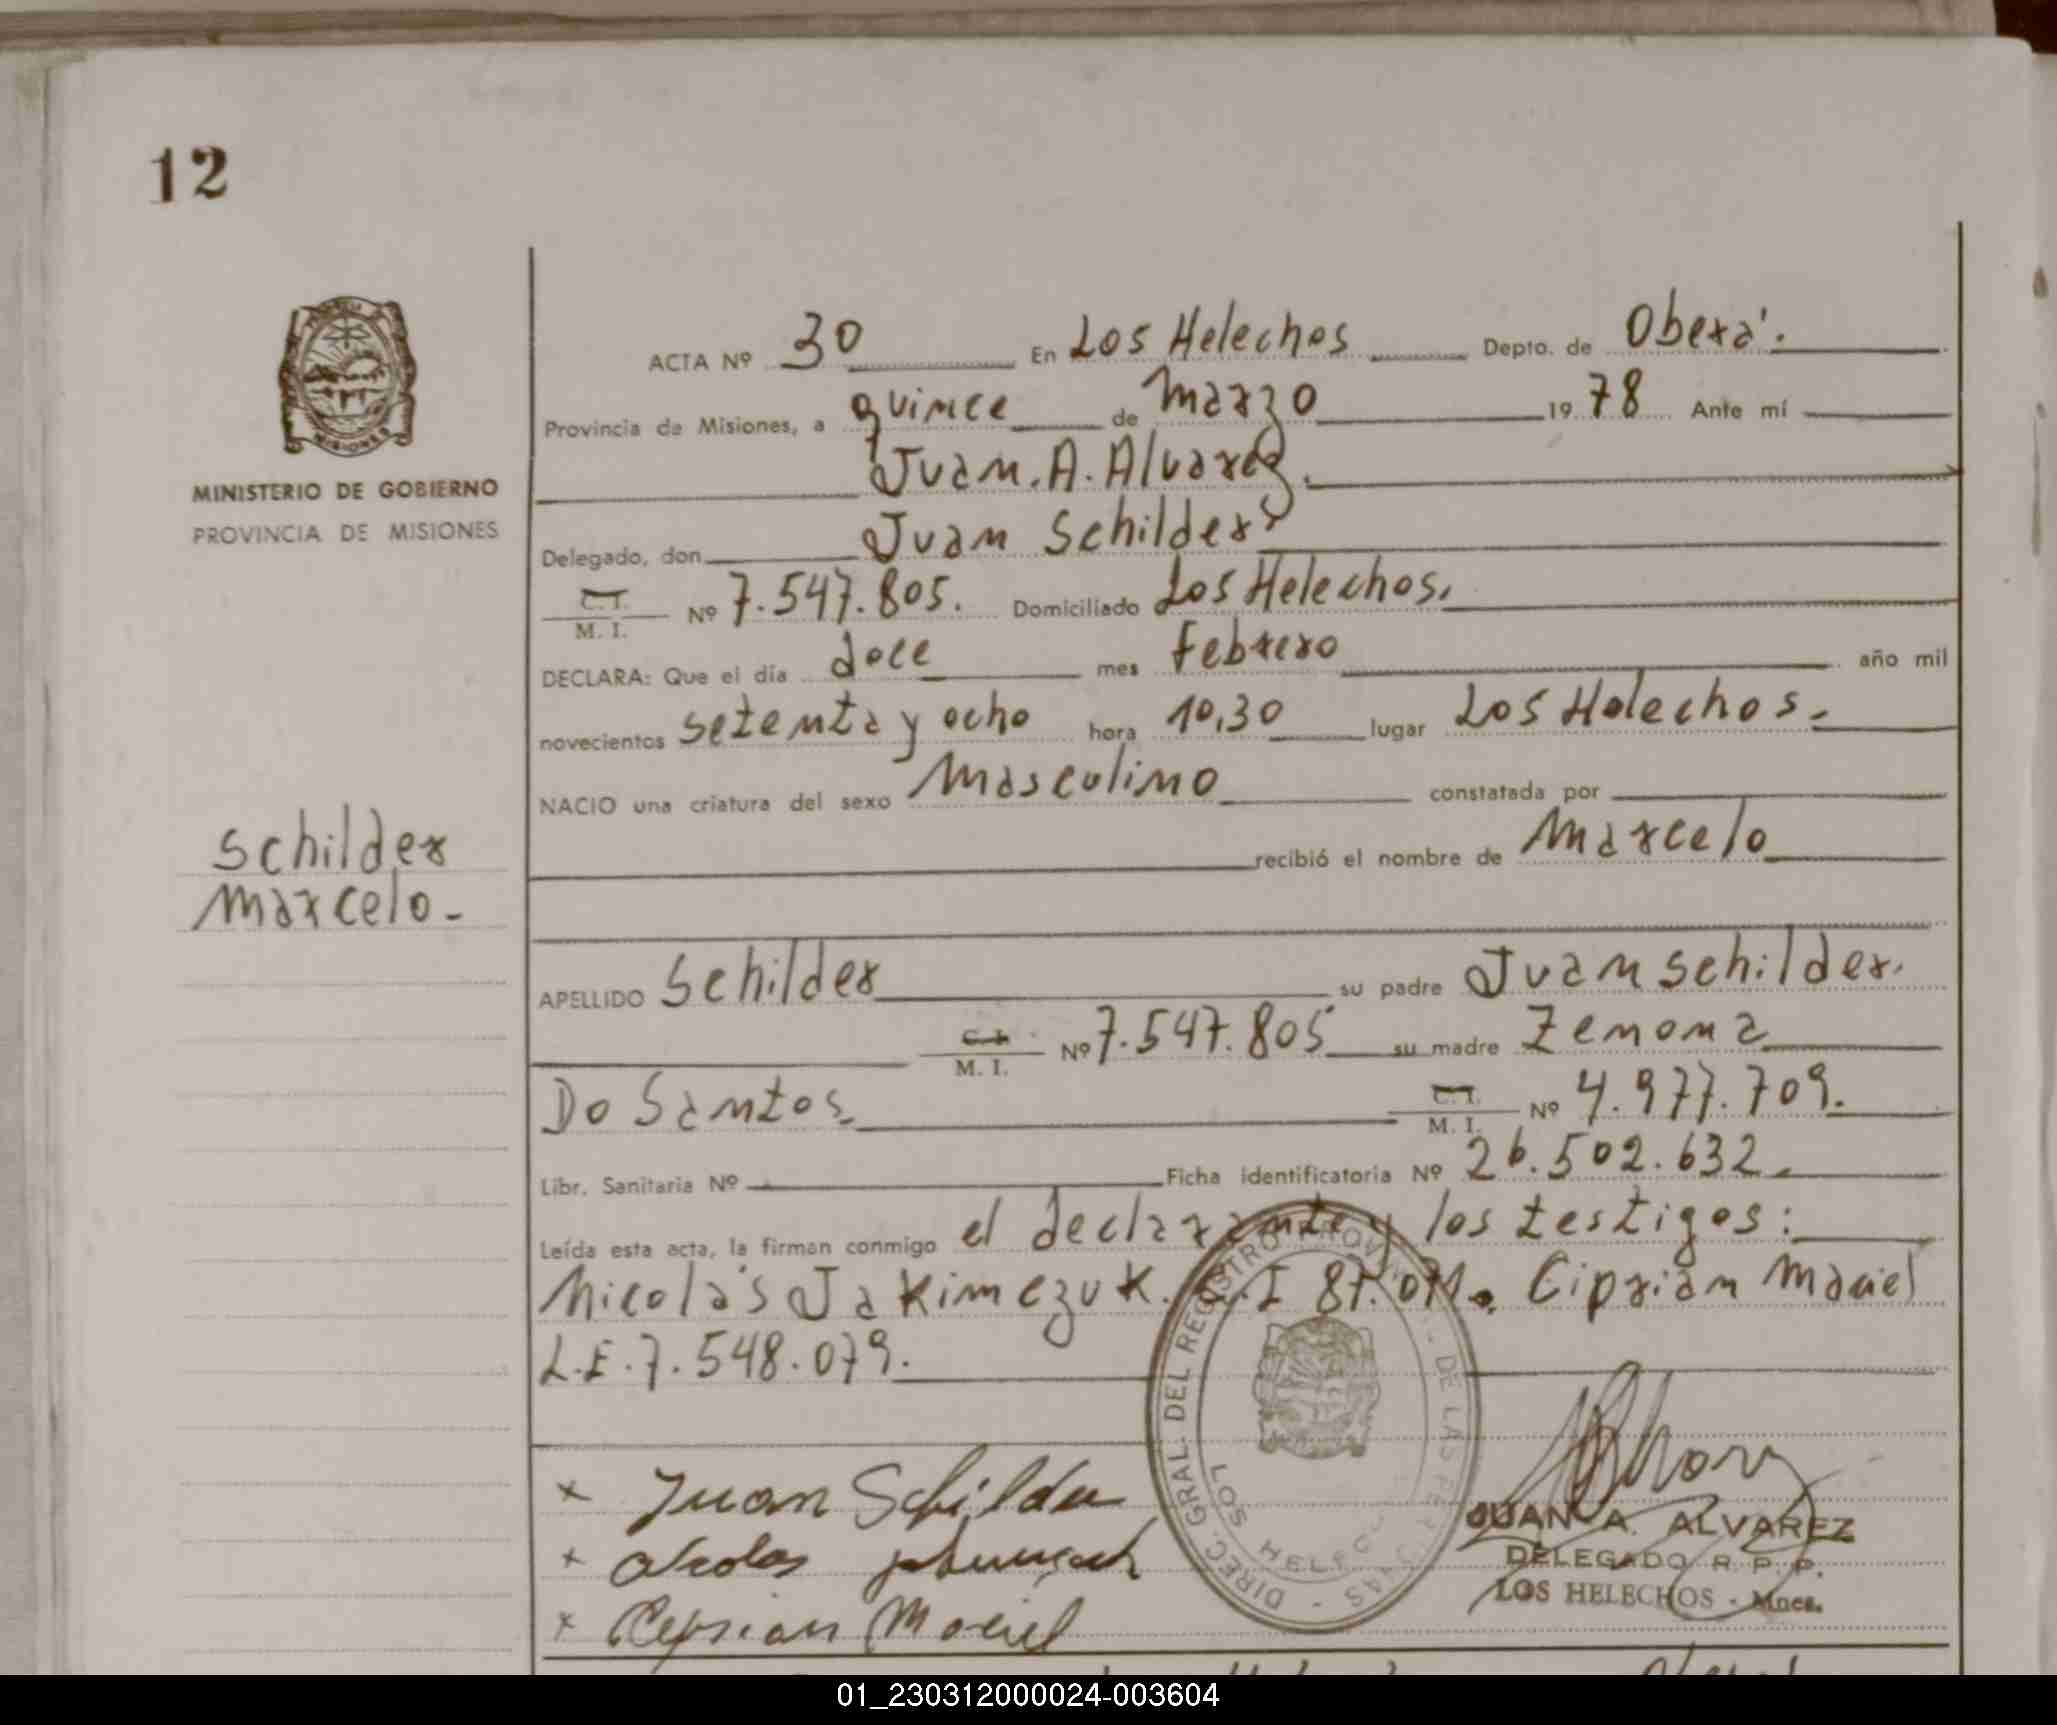 12
MINISTERIO DE GOBIERNO
PROVINCIA DE MISIONES
ACTA Nº 30 En Los Helechos Depto. de Oberá.
Provincia de Misiones, a quince de Marzo 1978 Ante mí
Juan. A. Alvarez.
Delegado, don Juan Schilder
C. I. M. I. Nº 7.547.805. Domiciliado Los Helechos.
DECLARA: Que el día doce mes Febrero año mil
novecientos setenta y ocho hora 10,30 lugar Los Helechos.
NACIO una criatura del sexo Masculino constatada por
recibió el nombre de Marcelo
Schilder
Marcelo.-
APELLIDO Schilder su padre Juan Schilder.
C. I. M. I. Nº 7.547.805 su madre Zenona
Do Santos. C. I. M. I. Nº 4.977.709.
Libr. Sanitaria Nº Ficha identificatoria Nº 26.502.632.
Leída esta acta, la firman conmigo el declarante y los testigos:
Nicolás Jakimczuk. C.I Ciprian Maciel
L.E. 7.548.079.
x Juan Schilder
x Nicolas
x Ciprian Maciel
DIREC. GRAL. DEL REGISTRO PROVINCIAL DE LAS PERSONAS
LOS HELECHOS
JUAN A. ALVAREZ
DELEGADO R. P. P.
LOS HELECHOS - Mnes.
01_230312000024-003604